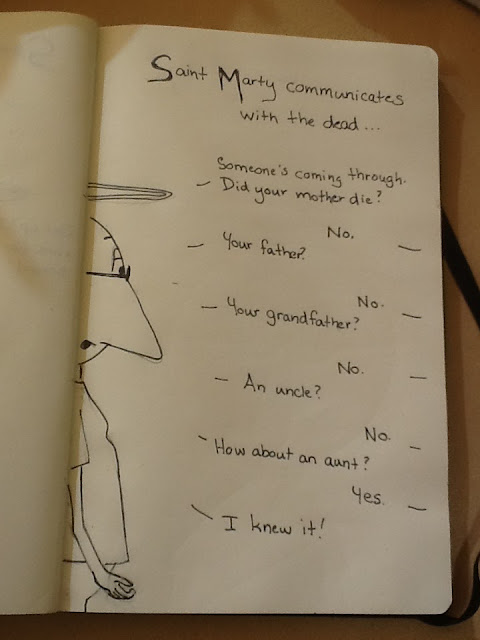 Saint Marty communicates
with the dead...
Someone's coming through.
– Did your mother die?
No. –
– Your father?
No. –
– Your grandfather?
No. –
– An uncle?
No. –
– How about an aunt?
Yes. –
– I knew it!